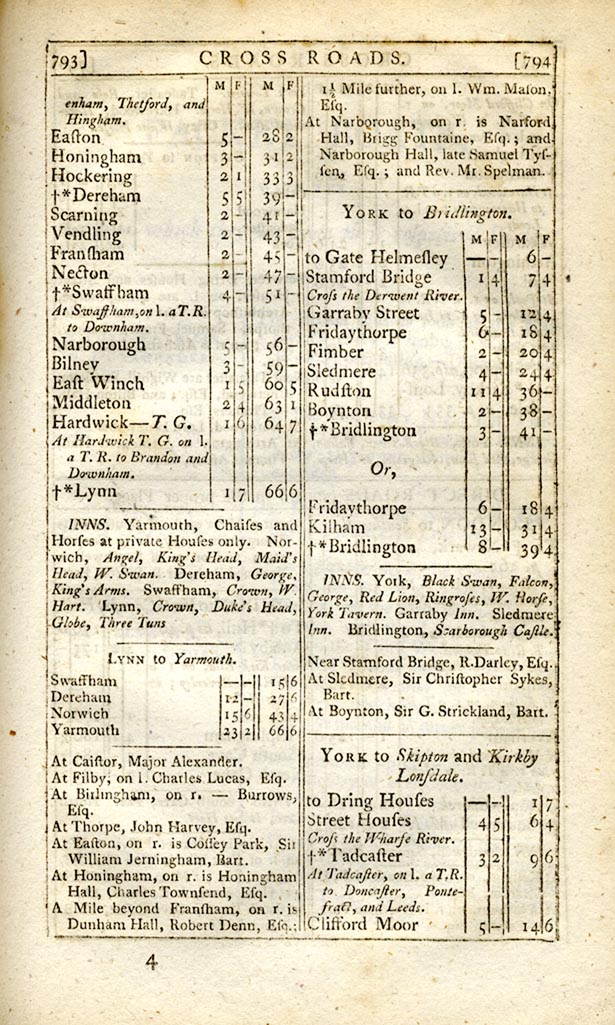 793]
CROSS ROADS.
[794
M F M F
enham, Thetford, and
Hingham.
Eaſton 5 – 28 2
Honingham 3 – 31 2
Hockering 2 1 33 3
†*Dereham 5 5 39 –
Scarning 2 – 41 –
Vendling 2 – 43 –
Franſham 2 – 45 –
Necton 2 – 47 –
†*Swaffham 4 – 51 –
At Swaffham, on l. a T. R.
to Downham.
Narborough 5 – 56 –
Bilney 3 – 59 –
Eaſt Winch 1 5 60 5
Middleton 2 4 63 1
Hardwick—T. G. 1 6 64 7
At Hardwick T. G. on l.
a T. R. to Brandon and
Downham.
†*Lynn 1 7 66 6
INNS. Yarmouth, Chaiſes and
Horſes at private Houſes only. Nor-
wich, Angel, King's Head, Maid's
Head, W. Swan. Dereham, George,
King's Arms. Swaffham, Crown, W.
Hart. Lynn, Crown, Duke's Head,
Globe, Three Tuns
LYNN to Yarmouth.
Swaffham — — 15 6
Dereham 12 – 27 6
Norwich 15 6 43 4
Yarmouth 23 2 66 6
At Caiſtor, Major Alexander.
At Filby, on l. Charles Lucas, Eſq.
At Birlingham, on r. — Burrows,
Eſq.
At Thorpe, John Harvey, Eſq.
At Eaſton, on r. is Coſſey Park, Sir
William Jerningham, Bart.
At Honingham, on r. is Honingham
Hall, Charles Townſend, Eſq.
A Mile beyond Franſham, on r. is
Dunham Hall, Robert Denn, Eſq.;
1½ Mile further, on l. Wm. Maſon,
Eſq.
At Narborough, on r. is Narford
Hall, Brigg Fountaine, Eſq.; and
Narborough Hall, late Samuel Tyſ-
ſen, Eſq.; and Rev. Mr. Spelman.
YORK to Bridlington.
M F M F
to Gate Helmeſley — — 6 –
Stamford Bridge 1 4 7 4
Croſs the Derwent River.
Garraby Street 5 – 12 4
Fridaythorpe 6 – 18 4
Fimber 2 – 20 4
Sledmere 4 – 24 4
Rudſton 11 4 36 –
Boynton 2 – 38 –
†*Bridlington 3 – 41 –
Or,
Fridaythorpe 6 – 18 4
Kilham 13 – 31 4
†*Bridlington 8 – 39 4
INNS. York, Black Swan, Falcon,
George, Red Lion, Ringroſes, W. Horſe,
York Tavern. Garraby Inn. Sledmere
Inn. Bridlington, Scarborough Caſtle.
Near Stamford Bridge, R. Darley, Eſq.
At Sledmere, Sir Chriſtopher Sykes,
Bart.
At Boynton, Sir G. Strickland, Bart.
YORK to Skipton and Kirkby
Lonſdale.
to Dring Houſes — — 1 7
Street Houſes 4 5 6 4
Croſs the Wharfe River.
†*Tadcaſter 3 2 9 6
At Tadcaſter, on l. a T. R.
to Doncaſter, Ponte-
fract, and Leeds.
Clifford Moor 5 – 14 6
4